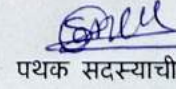 पथक सदस्याची